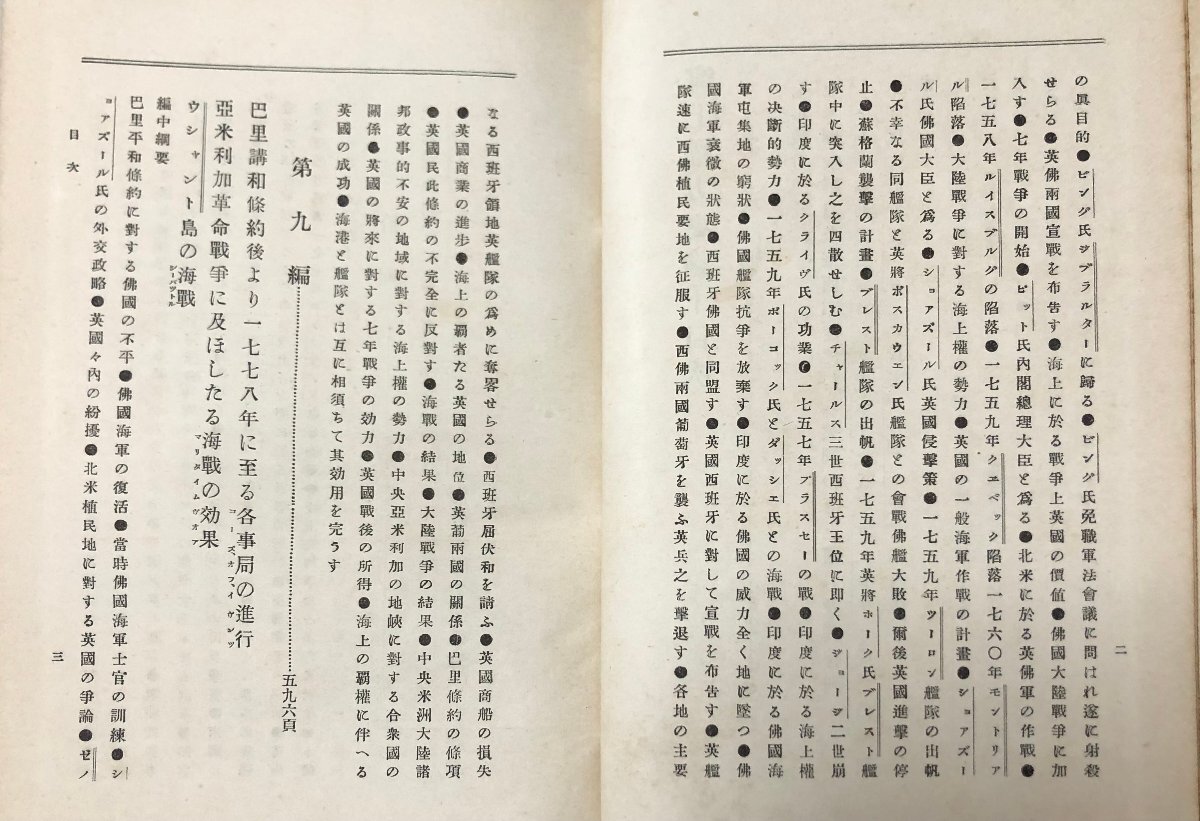 の眞目的●ビング氏ジブラルターに歸る●ビング氏免職軍法會議に問はれ遂に射殺
せらる●英佛兩國宣戰を布告す●海上に於る戰爭上英國の價値●佛國大陸戰爭に加
入す●七年戰爭の開始●ピット氏內閣總理大臣と爲る●北米に於る英佛軍の作戰●
一七五八年ルイスブルグの陷落●一七五九年クエベック陷落一七六〇年モントリア
ル陷落●大陸戰爭に對する海上權の勢力●英國の一般海軍作戰の計畫●ショアズー
ル氏佛國大臣と爲る●ショアズール氏英國侵擊策●一七五九年ツーロン艦隊の出帆
●不幸なる同艦隊と英將ボスカウェン氏艦隊との會戰佛艦大敗●爾後英國進擊の停
止●蘇格蘭襲擊の計畫●ブレスト艦隊の出帆●一七五九年英將ホーク氏ブレスト艦
隊中に突入し之を四散せしむ●チャールス三世西班牙王位に卽く●ジョージ二世崩
す●印度に於るクライヴ氏の功業●一七五七年プラスセーの戰●印度に於る海上權
の决斷的勢力●一七五九年ポーコック氏とダッシェ氏との海戰●印度に於る佛國海
軍屯集地の窮狀●佛國艦隊抗爭を放棄す●印度に於る佛國の威力全く地に墜つ●佛
國海軍衰微の狀態●西班牙佛國と同盟す●英國西班牙に對して宣戰を布告す●英艦
隊速に西佛植民要地を征服す●西佛兩國葡萄牙を襲ふ英兵之を擊退す●各地の主要
二
なる西班牙領地英艦隊の爲めに奪畧せらる●西班牙屈伏和を請ふ●英國商船の損失
●英國商業の進步●海上の覇者たる英國の地位●英葡兩國の關係●巴里條約の條項
●英國民此條約の不完全に反對す●海戰の結果●大陸戰爭の結果●中央米洲大陸諸
邦政事的不安の地域に對する海上權の勢力●中央亞米利加の地峽に對する合衆國の
關係●英國の將來に對する七年戰爭の効力●英國戰後の所得●海上の覇權に伴へる
英國の成功●海港と艦隊とは互に相須ちて其効用を完うす
第九編…………五九六頁
巴里講和條約後より一七七八年に至る各事局の進行
コーズ、オフ、イヴェンツ
亞米利加革命戰爭に及ほしたる海戰の効果
マリタイムウオア
ウシャント島の海戰
シーバツトル
編中綱要
巴里平和條約に對する佛國の不平●佛國海軍の復活●當時佛國海軍士官の訓練●シ
ョアズール氏の外交政略●英國々內の紛擾●北米植民地に對する英國の爭論●ゼノ
目次
三